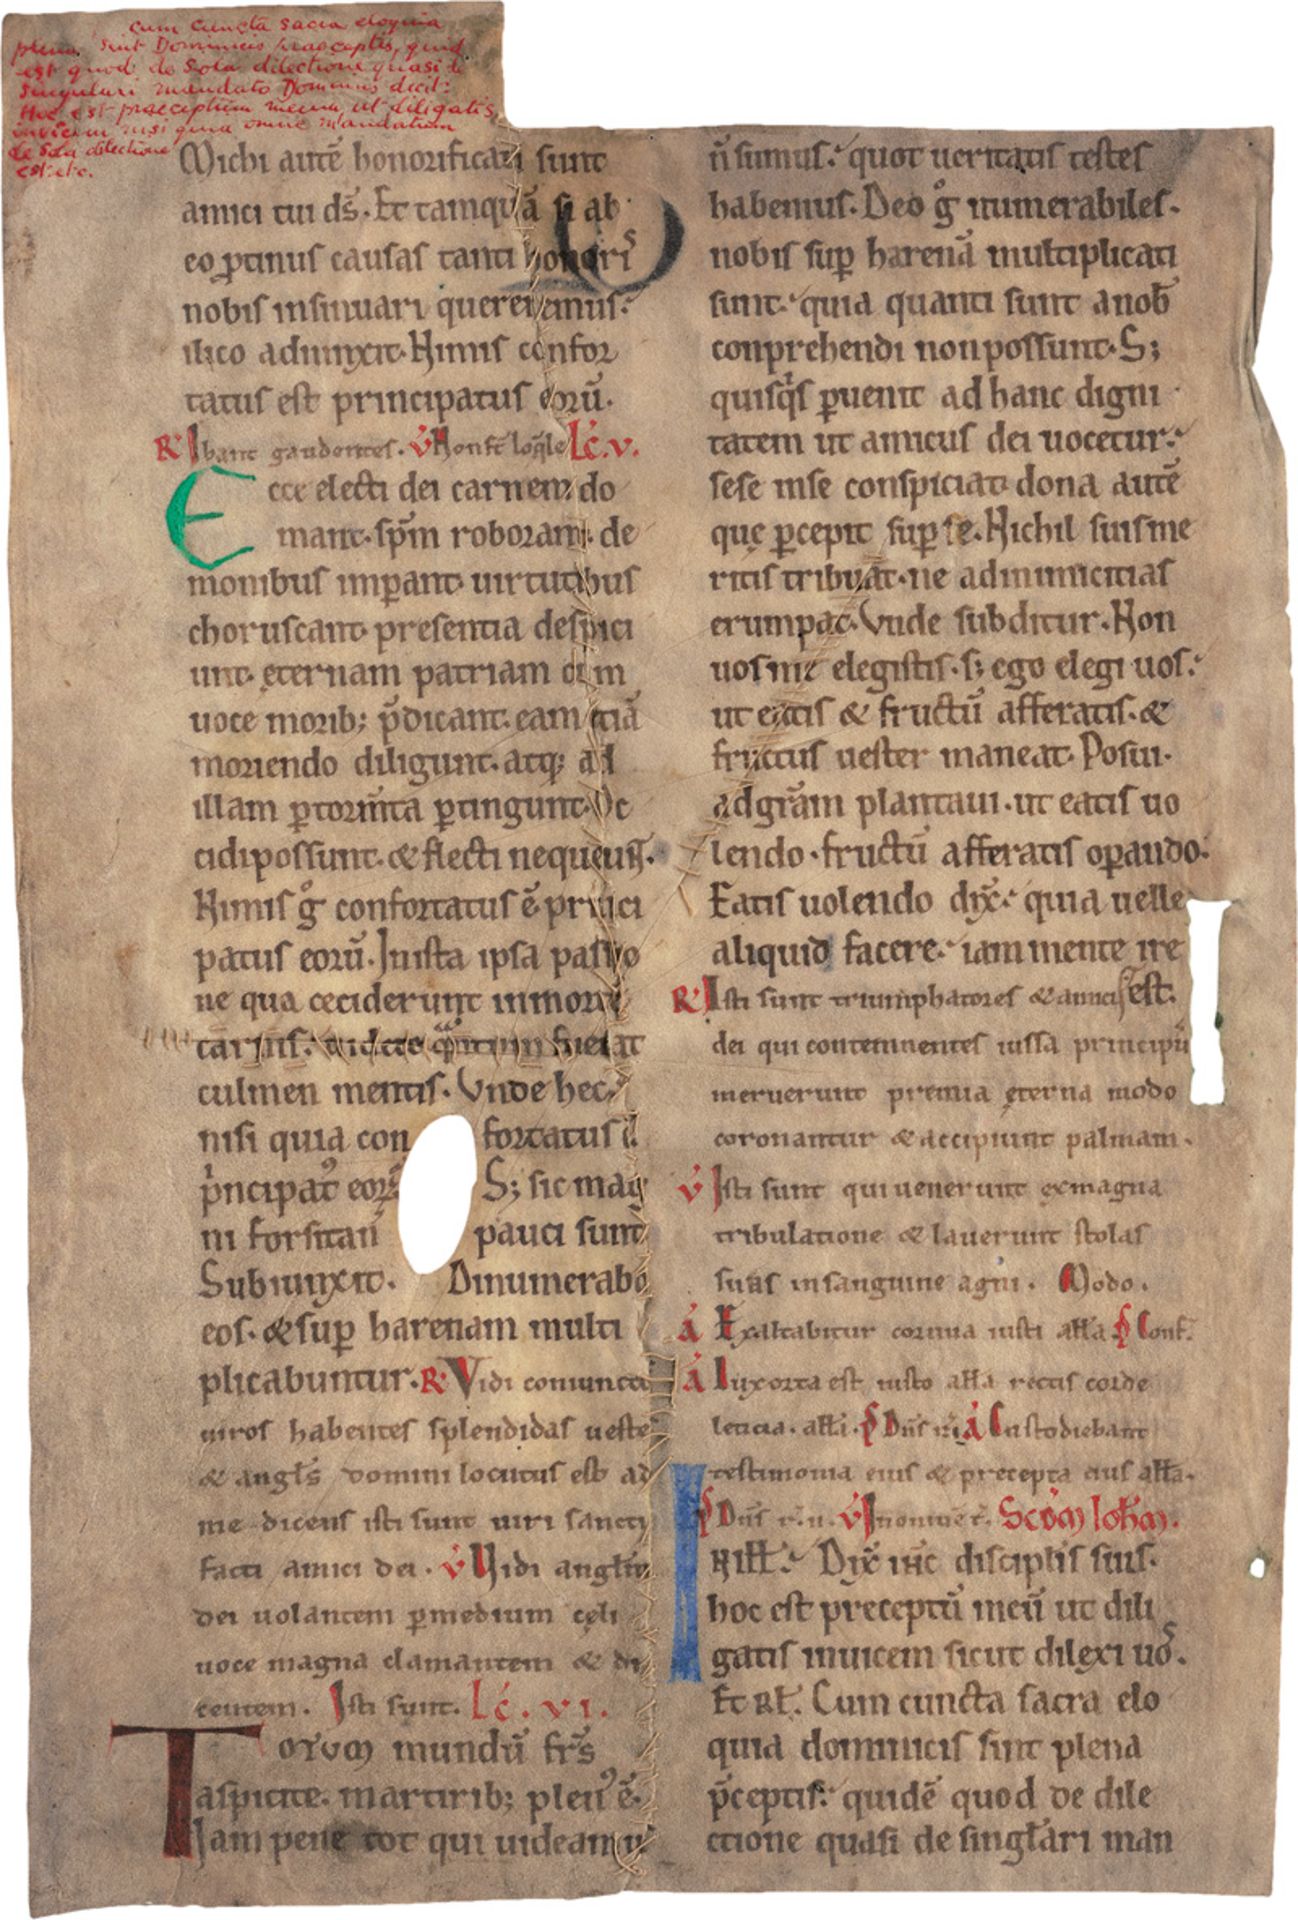 cum cuncta sacra eloquia
plena sint Dominicis praeceptis, quid
est quod de sola dilectione quasi de
singulari mandato Dominus dicit:
Hoc est praeceptum meum ut diligatis
invicem nisi quia omne mandatum
de sola dilectione
est etc.
Michi autē honorificati sunt
amici tui ds̄. Et tamquā si ab
eo ꝓtinus causas tanti honoris
nobis insinuari quereremus.
ilico adiunxit. Nimis confor
tatus est principatus eorū.
R Ibant gaudentes. V Non st̄ loq̄le Lc̄. v.
Ecce electi dei carnem do
mant. sp̄m roborant. de
monibus imꝑant. uirtutibus
choruscant. presentia despici
unt. ęternam patriam cum
uoce morib; p̄dicant. eam etiā
moriendo diligunt. atq; ad
illam ꝑ torm̄ta ꝑtingunt. Oc
cidi possunt. & flecti nequeunt.
Nimis g̊ confortatus ē princi
patus eorū. In ista ipsa passio
ne qua ceciderunt in morte
carnis. uidete quantum fuerat
culmen mentis. Vnde hec.
nisi quia confortatus ē
p̍ncipat᾽ eoꝝ. S; sic mag
ni forsitan pauci sunt
Subiunxit. Dinumerabo
eos. & suꝑ harenam multi
plicabuntur. R Vidi coniunctos
uiros habentes splendidas ueste
& angl̄s domini locutus est ad
me dicens isti sunt uiri sancti
facti amici dei. V Vidi angl̄m
dei uolantem ꝑ medium cęli
uoce magna clamantem & di
centem. Isti sunt. Lc̄. vi.
Totum mundū fr̄s
aspicite. martirib; plen᾽ ē.
Iam pene tot qui uideam᾽
n̄ sumus. quot ueritatis testes
habemus. Deo g̊ numerabiles.
nobis suꝑ harenā multiplicati
sunt. quia quanti sunt a nob̄
conprehendi non possunt. S;
quisq̍s ꝑuenit ad hanc digni
tatem ut amicus dei uocetur.
sese in se conspiciat. dona autē
quę ꝑcepit suꝑ se. Nichil suis me
ritis tribuat. ne ad inimicitias
erumpat. Vnde subditur. Non
uos me elegistis. s; ego elegi uos.
ut eatis & fructū afferatis. &
fructus uester maneat. Posui.
ad gr̄am plantaui. ut eatis uo
lendo. fructū afferatis oꝑando.
Eatis uolendo dix̄. quia uelle
aliquid facere. iam mente ire
est.
R Isti sunt triumphatores & amici
dei qui contemnentes iussa principū
meruerunt premia ęterna modo
coronantur & accipiunt palmam.
V Isti sunt qui uenerunt ex magna
tribulatione & lauerunt stolas
suas in sanguine agni. Modo.
A Exaltabitur cornua iusti all̄a P Conf̄.
A Lux orta est iusto all̄a rectis corde
leticia. all̄a. P Dn̄s r̄. A Custodiebant
testimonia eius & precepta eius all̄a.
P Dn̄s r. n. V In omnē t̄. Scdm Ioh̄m.
IN ill̄. Dix̄ ih̄c disciplis suis.
hoc est preceptū meū ut dili
gatis inuicem sicut dilexi uos.
Et rl̄. Cum cuncta sacra elo
quia dominicis sint plena
p̄ceptis. quid ē quod de dile
ctione quasi de singl̄ari man